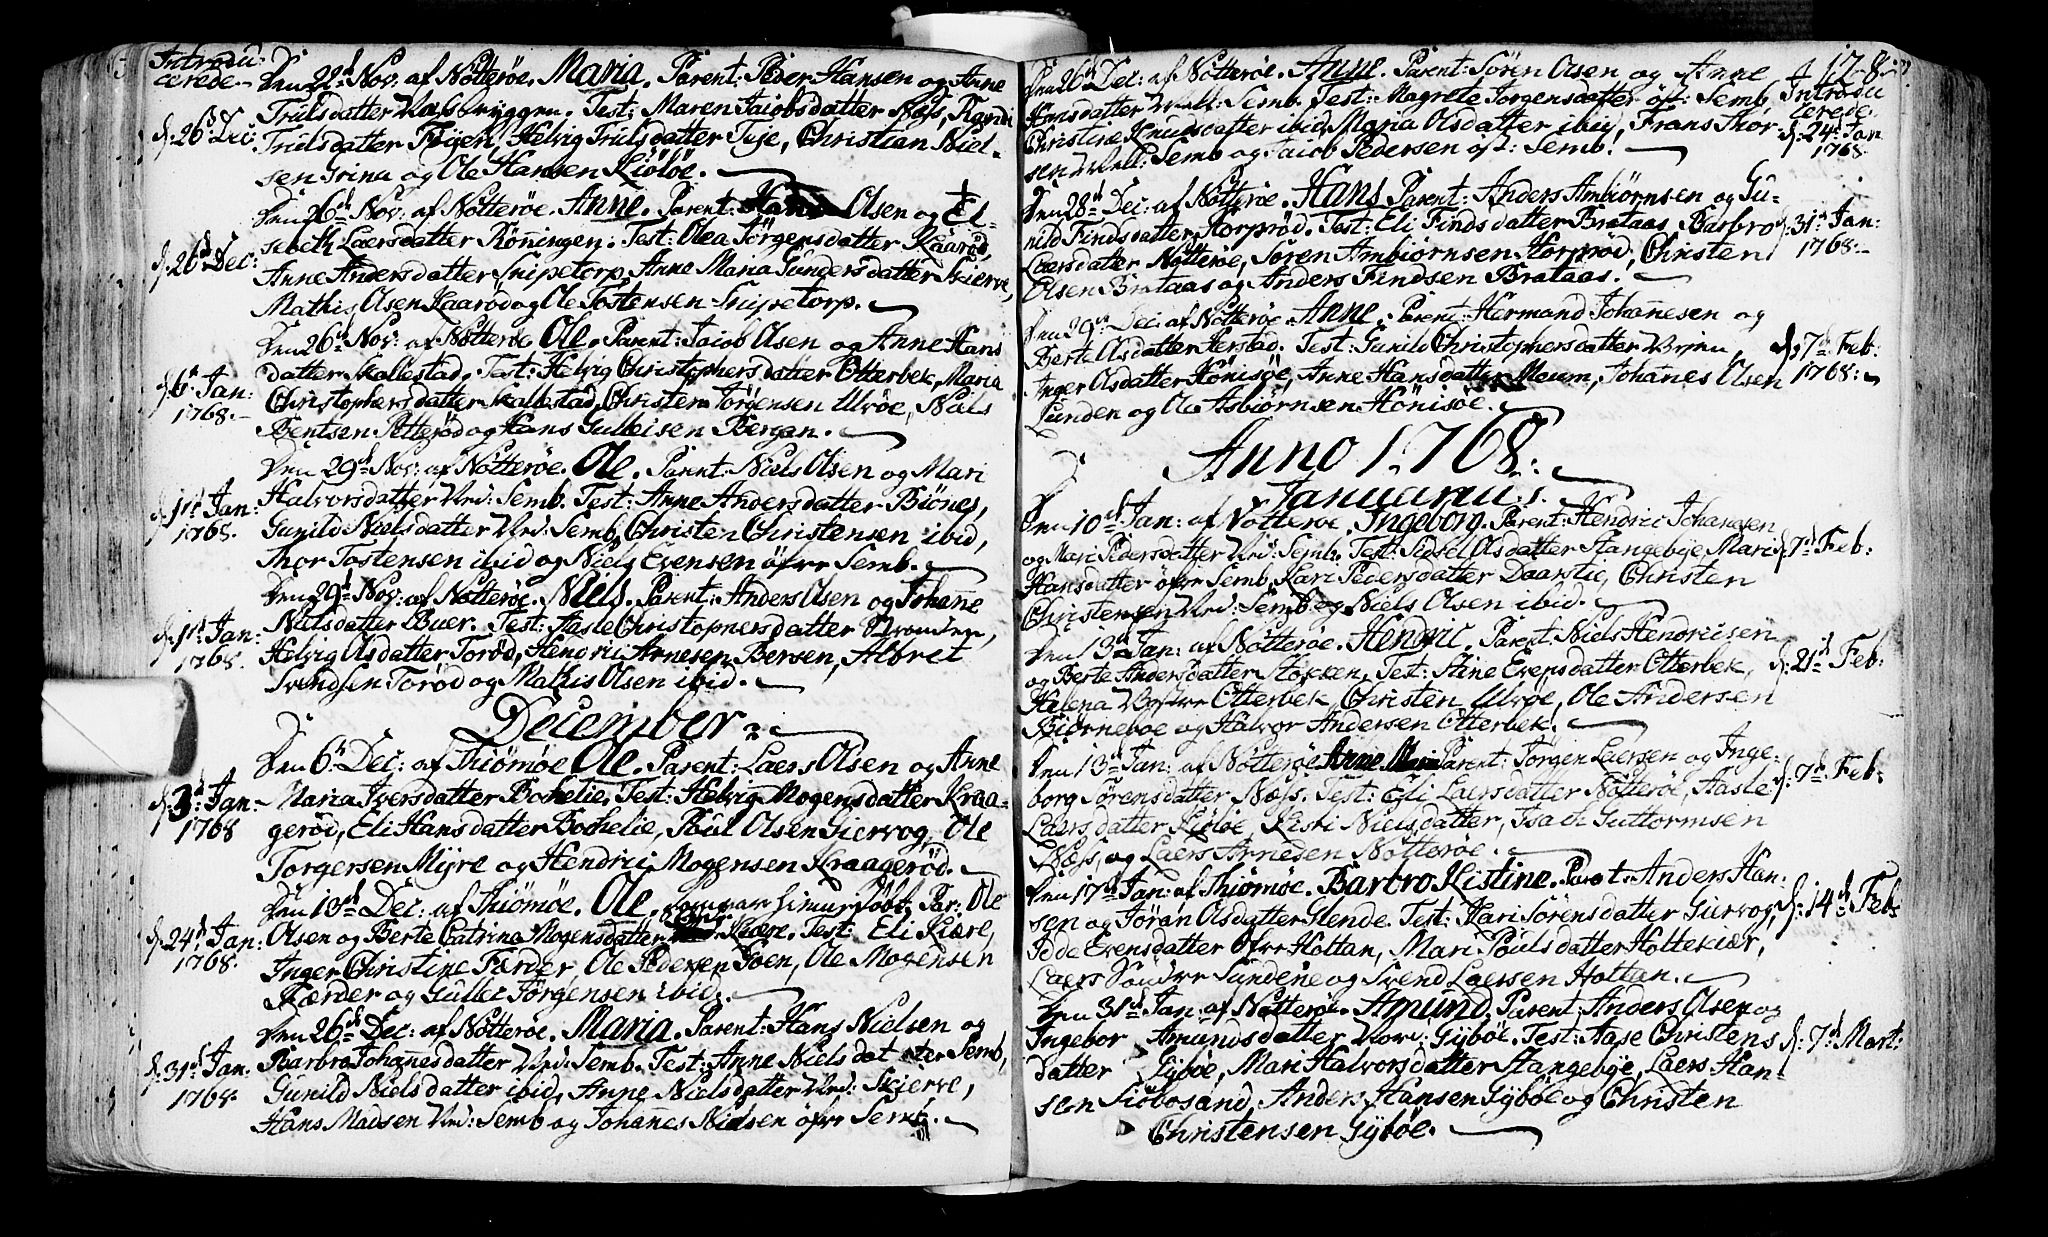 Introdu:
cerede
Den 22d Nov: af Nötteröe. Maria. Parent: Peder Hansen og Anne
Trulsdatter Test: Maren Jacobsdatter Næss,
d: 26d Dec:
Trulsdatter Föyen, Helvig Trulsdatter Teje, Christian Niel-
sen Grinu og Ole Hansen Kiölöe.
Den 26d Nov: af Nötteröe. Anne. Parent: Olsen og El-
sebeth Laersdatter Rönningen. Test: Olea Jörgensdatter Kaaröd,
d: 26d Dec:
Anne Andersdatter Snipetorp, Anne Maria Gungersdatter Skierve,
Mathis Olsen Kaaröd og Ole Tostensen Snipetorp.
Den 26d Nov: af Nötteröe Ole. Parent: Jacob Olsen og Anne Hans
datter Skallestad. Test: Helvig Christophersdatter Otterbek, Maria
d: 6d Jan:
1768.
Christophersdatter Skallestad, Christen Jörgensen Ulvöe, Niels
Bentsen Petteröd og Hans Gulleisen Bergan.
Den 29d Nov: af Nötteröe. Ole. Parent: Niels Olsen og Mari
Halvorsdatter Ned: Semb. Test: Anne Andersdatter Biönes,
d: 1d Jan:
1768.
Gunild Nielsdatter Ned: Semb, Christen Christensen ibid,
Thor Tostensen ibid og Niels Evensen öfre Semb.
Den 29d Nov: af Nötteröe. Niels. Parent: Anders Olsen og Johanne
Nielsdatter Buer. Test: Aasle Christophersdatter
d: 1d Jan:
1768.
Helvig Olsdatter Toröd, Hendric Arnesen Bersen, Albret
Svendsen Toröd og Mathis Olsen ibid.
December
Den 6d Dec: af Thiömöe Ole. Parent: Laers Olsen og Anne
d: 3d Jan
1768
Maria Iversdatter Bochelie. Test: Helvig Mogensdatter Kraa-
geröd, Eli Hansdatter Bochelie, Poul Olsen Giervog, Ole
Torgersen Myre og Hendric Mogensen Kraageröd.
Den 13d Dec: af Thiömöe. Ole, som var hiemmedöbt. Par: Ole
d: 24d Jan:
1768.
Olsen og Berte Catrina Mogensdatter Kiære. Test: Eli Kiære,
Inger Christine Færder, Ole Pedersen Goen, Ole Mogensen
Færder og Gullec Jörgensen ibid.
Den 26d Dec: af Nötteröe. Maria. Parent: Hans Nielsen og
d: 31d Jan:
1768.
Barbro Johanesdatter Ned: Semb. Test: Anne Nielsdatter Semb,
Gunild Nielsdatter ibid, Anne Nielsdatter Ned: Skierve,
Hans Madsen Ned: Semb og Johannes Nielsen öfre Semb.
128.
Den 26d Dec: af Nötteröe. Anne. Parent: Sören Olsen og Anne
Introdu
cerede
Semb. Test: Magrete Jorgensdatter öst: Semb
Christine Knudsdatter ibid, Maria Olsdatter ibid, Frans Thor
d: 24d Jan
1768.
sen Semb og Jacob Pedersen öst: Semb.
Den 28d Dec: af Nötteröe. Hans Parent: Anders Ambiörnsen og Gu-
nild Findsdatter Horpröd. Test: Eli Findsdatter Brataas, Barbro
d: 31d Jan:
1768.
Laersdatter Nötteröe, Sören Ambiörnsen Horpröd, Christen
Olsen Brataas og Anders Findsen Brataas.
Den 29d Dec: af Nötteröe. Anne. Parent: Hermand Johannesen og
Berte Olsdatter Herstad. Test: Gunild Christophersdatter
d: 7d Feb:
1768.
Inger Olsdatter Hönisöe, Anne Hansdatter Meum, Johanes Olsen
Lunden og Ole Asbiörnsen Hönisöe.
Anno 1768.
Januarius.
Den 10d Jan: af Nötteröe. Ingeborg. Parent: Hendric Johansen
og Mari Pedersdatter Ned: Semb. Test: Sidsel Olsdatter Stangebye, Mari
d: 7d Feb:
Hansdatter öfre Semb, Kari Pedersdatter Daarstie, Christen
Christensen Ned: Semb og Niels Olsen ibid.
Den 13d Jan: af Nötteröe. Hendric. Parent: Niels Hendricsen
og Berte Andersdatter Stökken. Test: Stine Evensdatter Otterbek,
d: 21d Feb:
Helena Otterbek, Christen Ulvöe, Ole Andersen
Biörneboe og Halvor Andersen Otterbek.
Den 13d Jan: af Nötteröe Anne Mari Parent: Jorgen Laersen og Inge-
borg Sörensdatter Næss. Test: Eli Laersdatter Nötteröe, Aasle
d: 7d Feb
Laersdatter Kiölöe, Kisti Nielsdatter, Isach Guttormsen
Næss, og Laers Arnesen Nötteröe.
Den 17d Jan: af Thiömöe. Barbro Kistine. Parent: Anders Han-
sen og Jöran Olsdatter Glende. Test: Kari Sörensdatter Giervog,
d: 14d Feb
Idde Evensdatter öfre Holtan, Mari Poulsdatter Holtekiær,
Laers Sundene og Svend Laersen Holtan.
Den 31d Jan: af Nötteröe. Amund. Parent: Anders Olsen og
Ingebor Amundsdatter Gyböe. Test: Aase Christens
d: 7d Mart:
datter Gyböe, Mari Halvorsdatter Stangebye, Laers Han-
sen Siöbosand, Anders Hansen Gyböe og Christen
Christensen Gyböe.